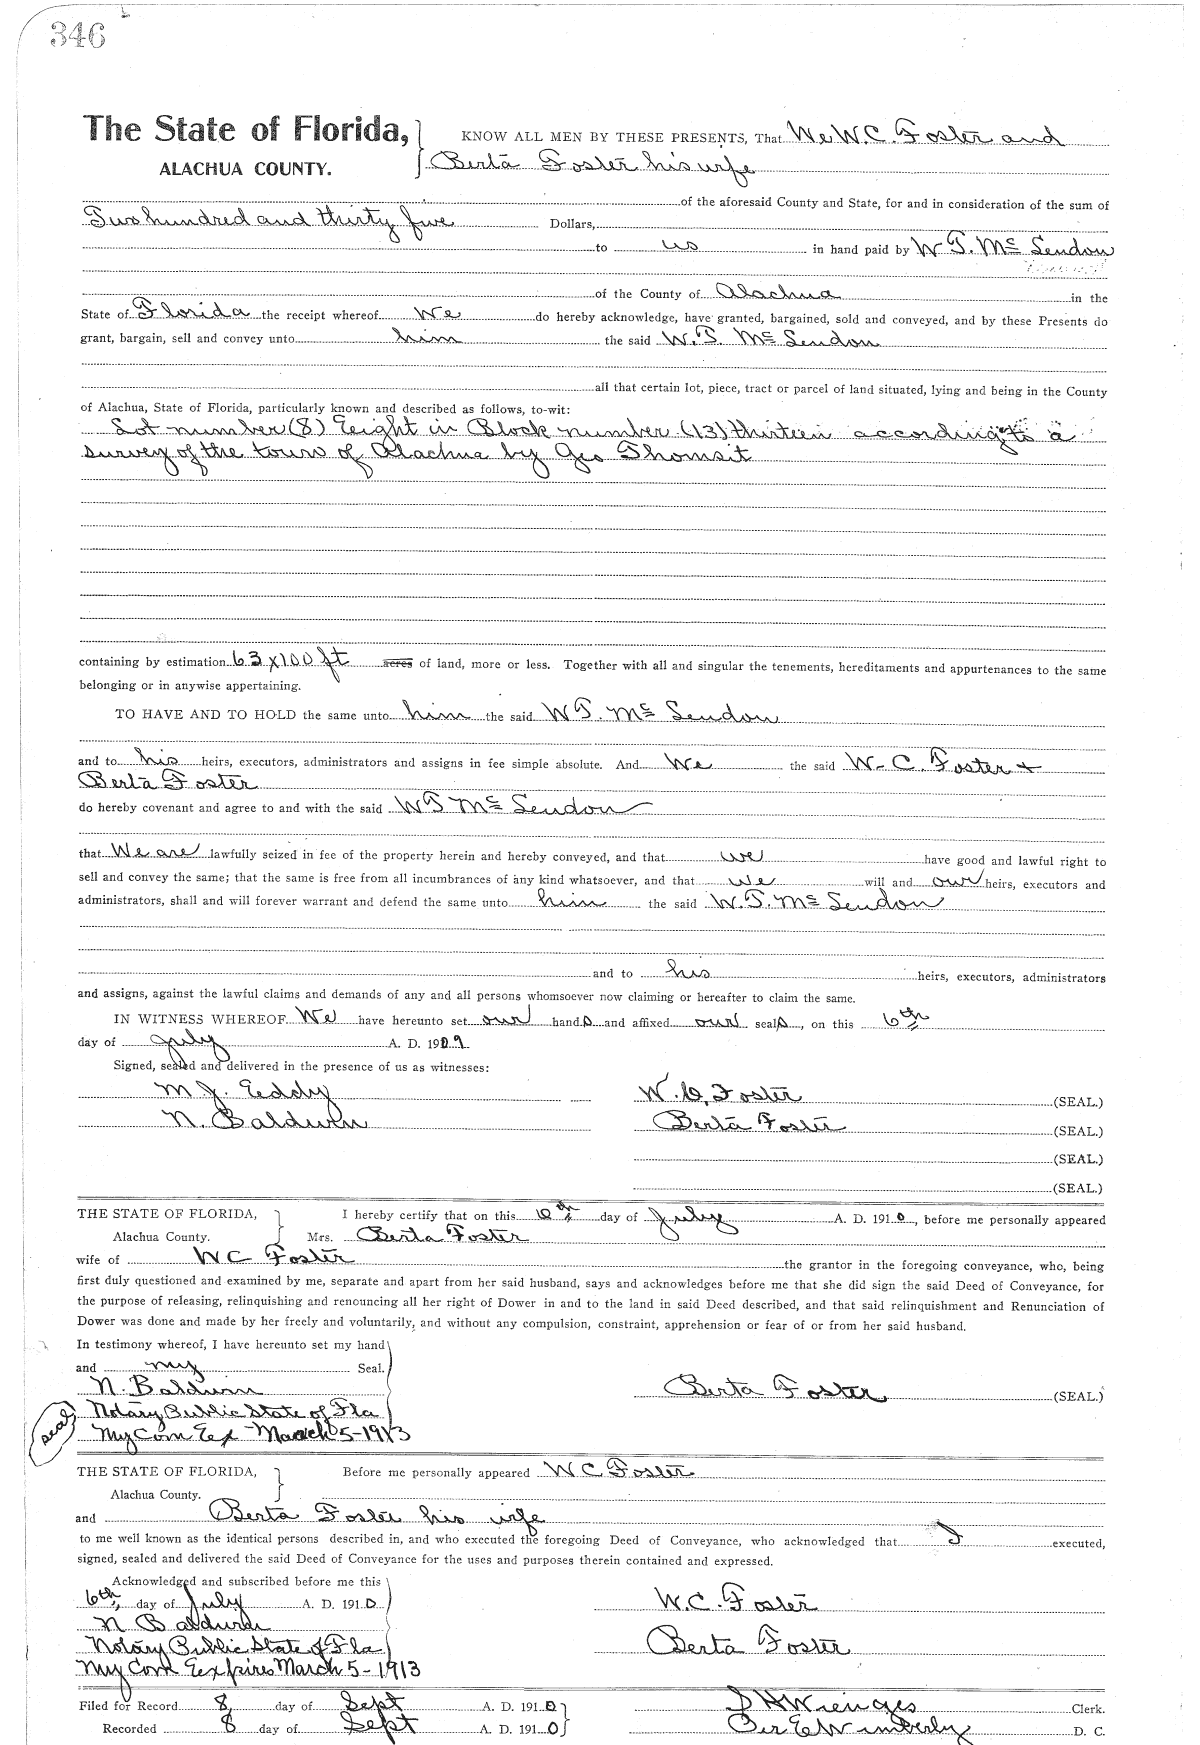 346
The State of Florida, KNOW ALL MEN BY THESE PRESENTS, That We W.C. Foster and
ALACHUA COUNTY. Berta Foster his wife
of the aforesaid County and State, for and in consideration of the sum of
Two hundred and thirty five Dollars,
to us in hand paid by W T. Mc Lendon
of the County of Alachua in the
State of Florida the receipt whereof We do hereby acknowledge, have granted, bargained, sold and conveyed, and by these Presents do
grant, bargain, sell and convey unto him the said W.T. Mc Lendon
all that certain lot, piece, tract or parcel of land situated, lying and being in the County
of Alachua, State of Florida, particularly known and described as follows, to-wit:
Lot number (8) Eeight in Block number (13) thirteen according to a
survey of the town of Alachua by Geo Thomsit
containing by estimation 63 x 100 ft acres of land, more or less. Together with all and singular the tenements, hereditaments and appurtenances to the same
belonging or in anywise appertaining.
TO HAVE AND TO HOLD the same unto him the said W T. Mc Lendon
and to his heirs, executors, administrators and assigns in fee simple absolute. And We the said W- C. Foster +
Berta Foster
do hereby covenant and agree to and with the said W T Mc Lendon
that We are lawfully seized in fee of the property herein and hereby conveyed, and that we have good and lawful right to
sell and convey the same; that the same is free from all incumbrances of any kind whatsoever, and that we will and our heirs, executors and
administrators, shall and will forever warrant and defend the same unto him the said W.T. Mc Lendon
and to his heirs, executors, administrators
and assigns, against the lawful claims and demands of any and all persons whomsoever now claiming or hereafter to claim the same.
IN WITNESS WHEREOF We have hereunto set our hands and affixed our seals, on this 6th
day of July A. D. 1909
Signed, sealed and delivered in the presence of us as witnesses:
M J. Eddy W. C. Foster (SEAL.)
N. Baldwin Berta Foster (SEAL.)
(SEAL.)
(SEAL.)
THE STATE OF FLORIDA, I hereby certify that on this 6th day of July A. D. 1910, before me personally appeared
Alachua County. Mrs. Berta Foster
wife of W C Foster the grantor in the foregoing conveyance, who, being
first duly questioned and examined by me, separate and apart from her said husband, says and acknowledges before me that she did sign the said Deed of Conveyance, for
the purpose of releasing, relinquishing and renouncing all her right of Dower in and to the land in said Deed described, and that said relinquishment and Renunciation of
Dower was done and made by her freely and voluntarily, and without any compulsion, constraint, apprehension or fear of or from her said husband.
In testimony whereof, I have hereunto set my hand
and my Seal.
N. Baldwin Berta Foster (SEAL.)
seal Notary Public State of Fla
My Com Ex March 5-1913
THE STATE OF FLORIDA, Before me personally appeared W C Foster
Alachua County.
and Berta Foster his wife
to me well known as the identical persons described in, and who executed the foregoing Deed of Conveyance, who acknowledged that executed,
signed, sealed and delivered the said Deed of Conveyance for the uses and purposes therein contained and expressed.
Acknowledged and subscribed before me this
6th, day of July A. D. 1910 W.C. Foster
N Baldwin
Notary Public State of Fla Berta Foster
My Com Eexpires March 5-1913
Filed for Record 8 day of Sept A. D. 1910 S H Wienges Clerk.
Recorded 8 day of Sept A. D. 1910 Per E Wimberly D. C.